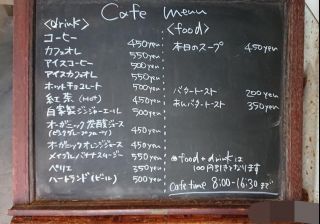 Cafe menu
<drink>
コーヒー 450yen
カフェオレ 550yen
アイスコーヒー 500yen
アイスカフェオレ 550yen
ホットチョコレート 500yen
紅茶(HOT) 450yen
自家製ジンジャーエール 500yen
オーガニック炭酸ジュース
450yen
オーガニックオレンジジュース 450yen
メイプルバナナスムージー 550yen
ペリエ 350yen
ハートランド(ビール) 500yen
<food>
本日のスープ 450yen
バタートースト 200yen
あんバタートースト 350yen
food + drinkは
100円引きとなります
Cafe time 8:00-16:30まで